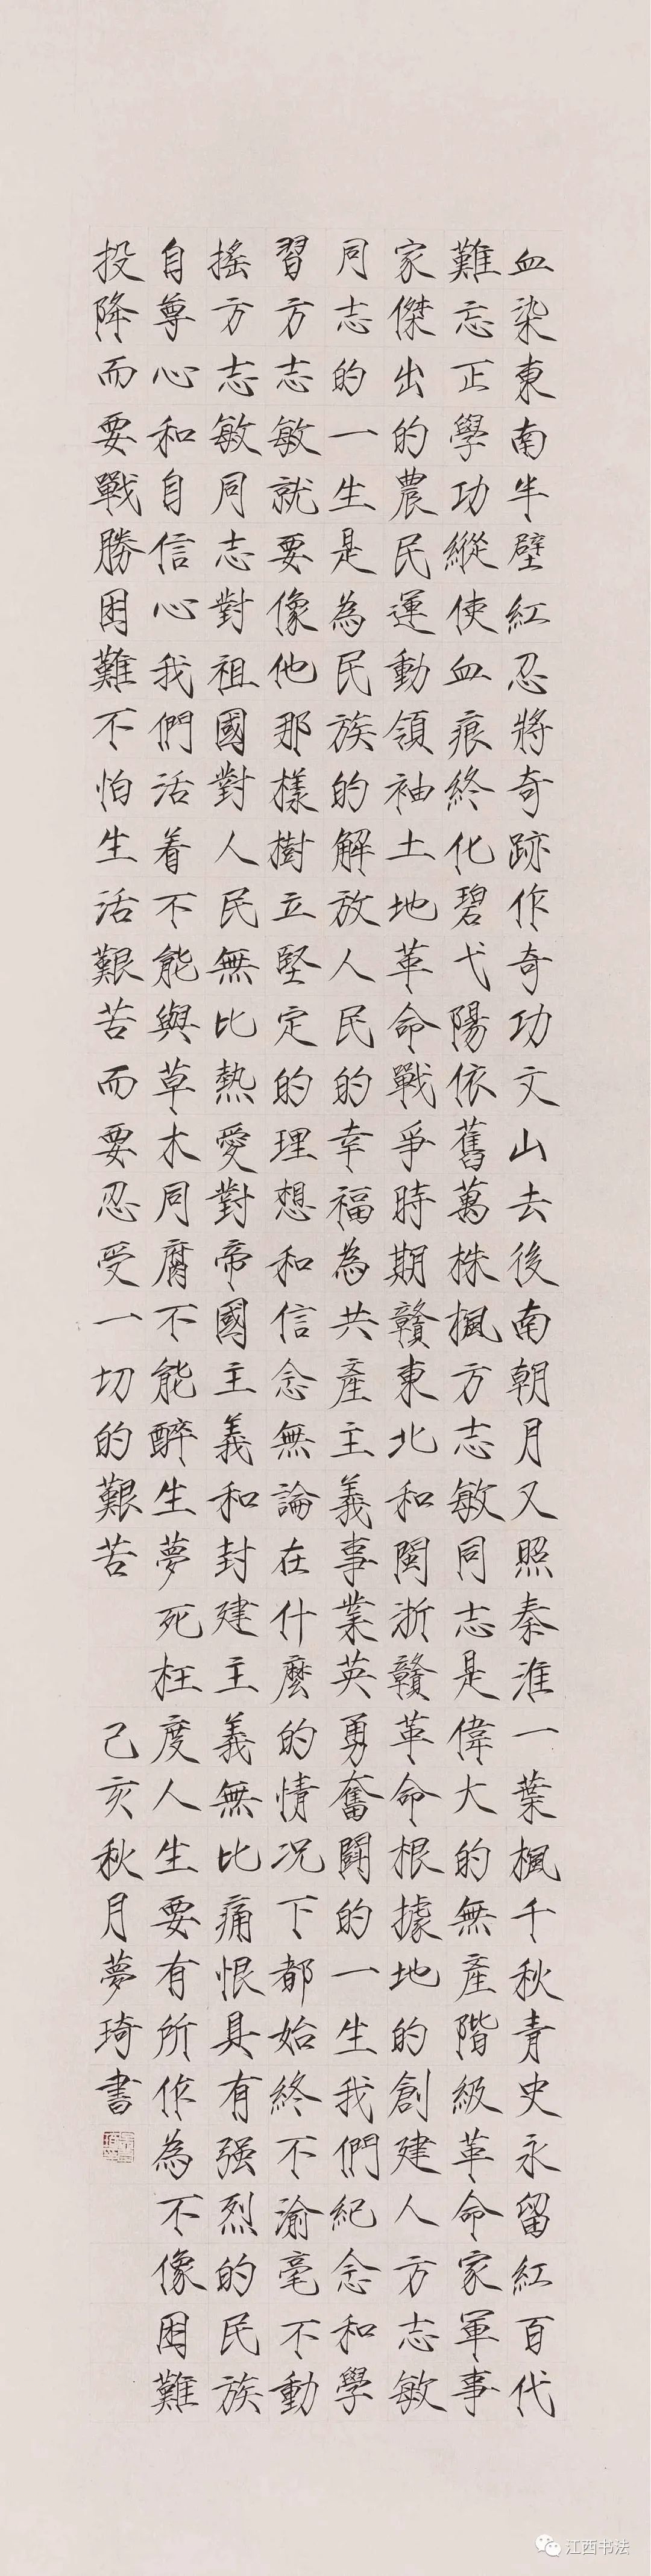 血染東南半壁紅忍將奇跡作奇功文山去後南朝月又照秦淮一葉楓千秋青史永留紅百代
難忘正學功縱使血痕終化碧弋陽依舊萬株楓方志敏同志是偉大的無產階級革命家軍事
家傑出的農民運動領袖土地革命戰爭時期贛東北和閩浙贛革命根據地的創建人方志敏
同志的一生是為民族的解放人民的幸福為共產主義事業英勇奮鬪的一生我們紀念和學
習方志敏就要像他那樣樹立堅定的理想和信念無論在什麼的情況下都始終不渝毫不動
搖方志敏同志對祖國對人民無比熱愛對帝國主義和封建主義無比痛恨具有强烈的民族
自尊心和自信心我們活着不能與草木同腐不能醉生夢死枉度人生要有所作為不像困難
投降而要戰勝困難不怕生活艱苦而要忍受一切的艱苦 己亥秋月夢琦書
江西书法